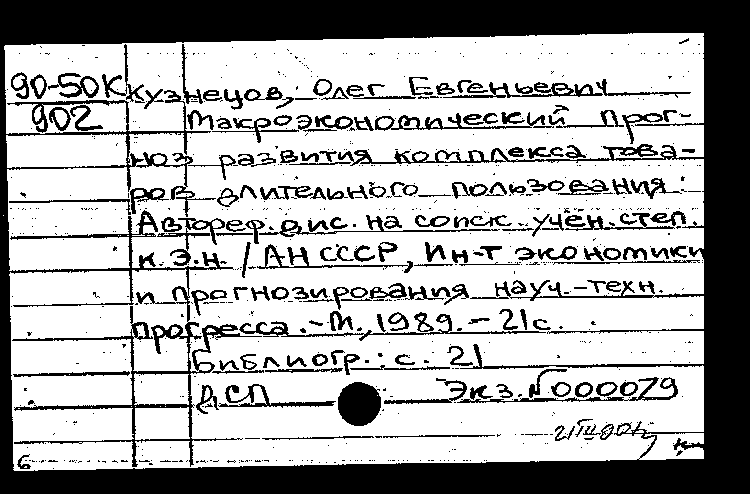 90-50К Кузнецов, Олег Евгеньевич
902 Макроэкономический прог-
ноз развития комплекса това-
ров длительного пользования :
Автореф. дис. на соиск. учён. степ.
к. э.н. / АН СССР, Ин-т экономики
и прогнозирования науч.-техн.
прогресса. – М., 1989. – 21 с.
Библиогр.: с. 21
ДСП Экз. №000079
6